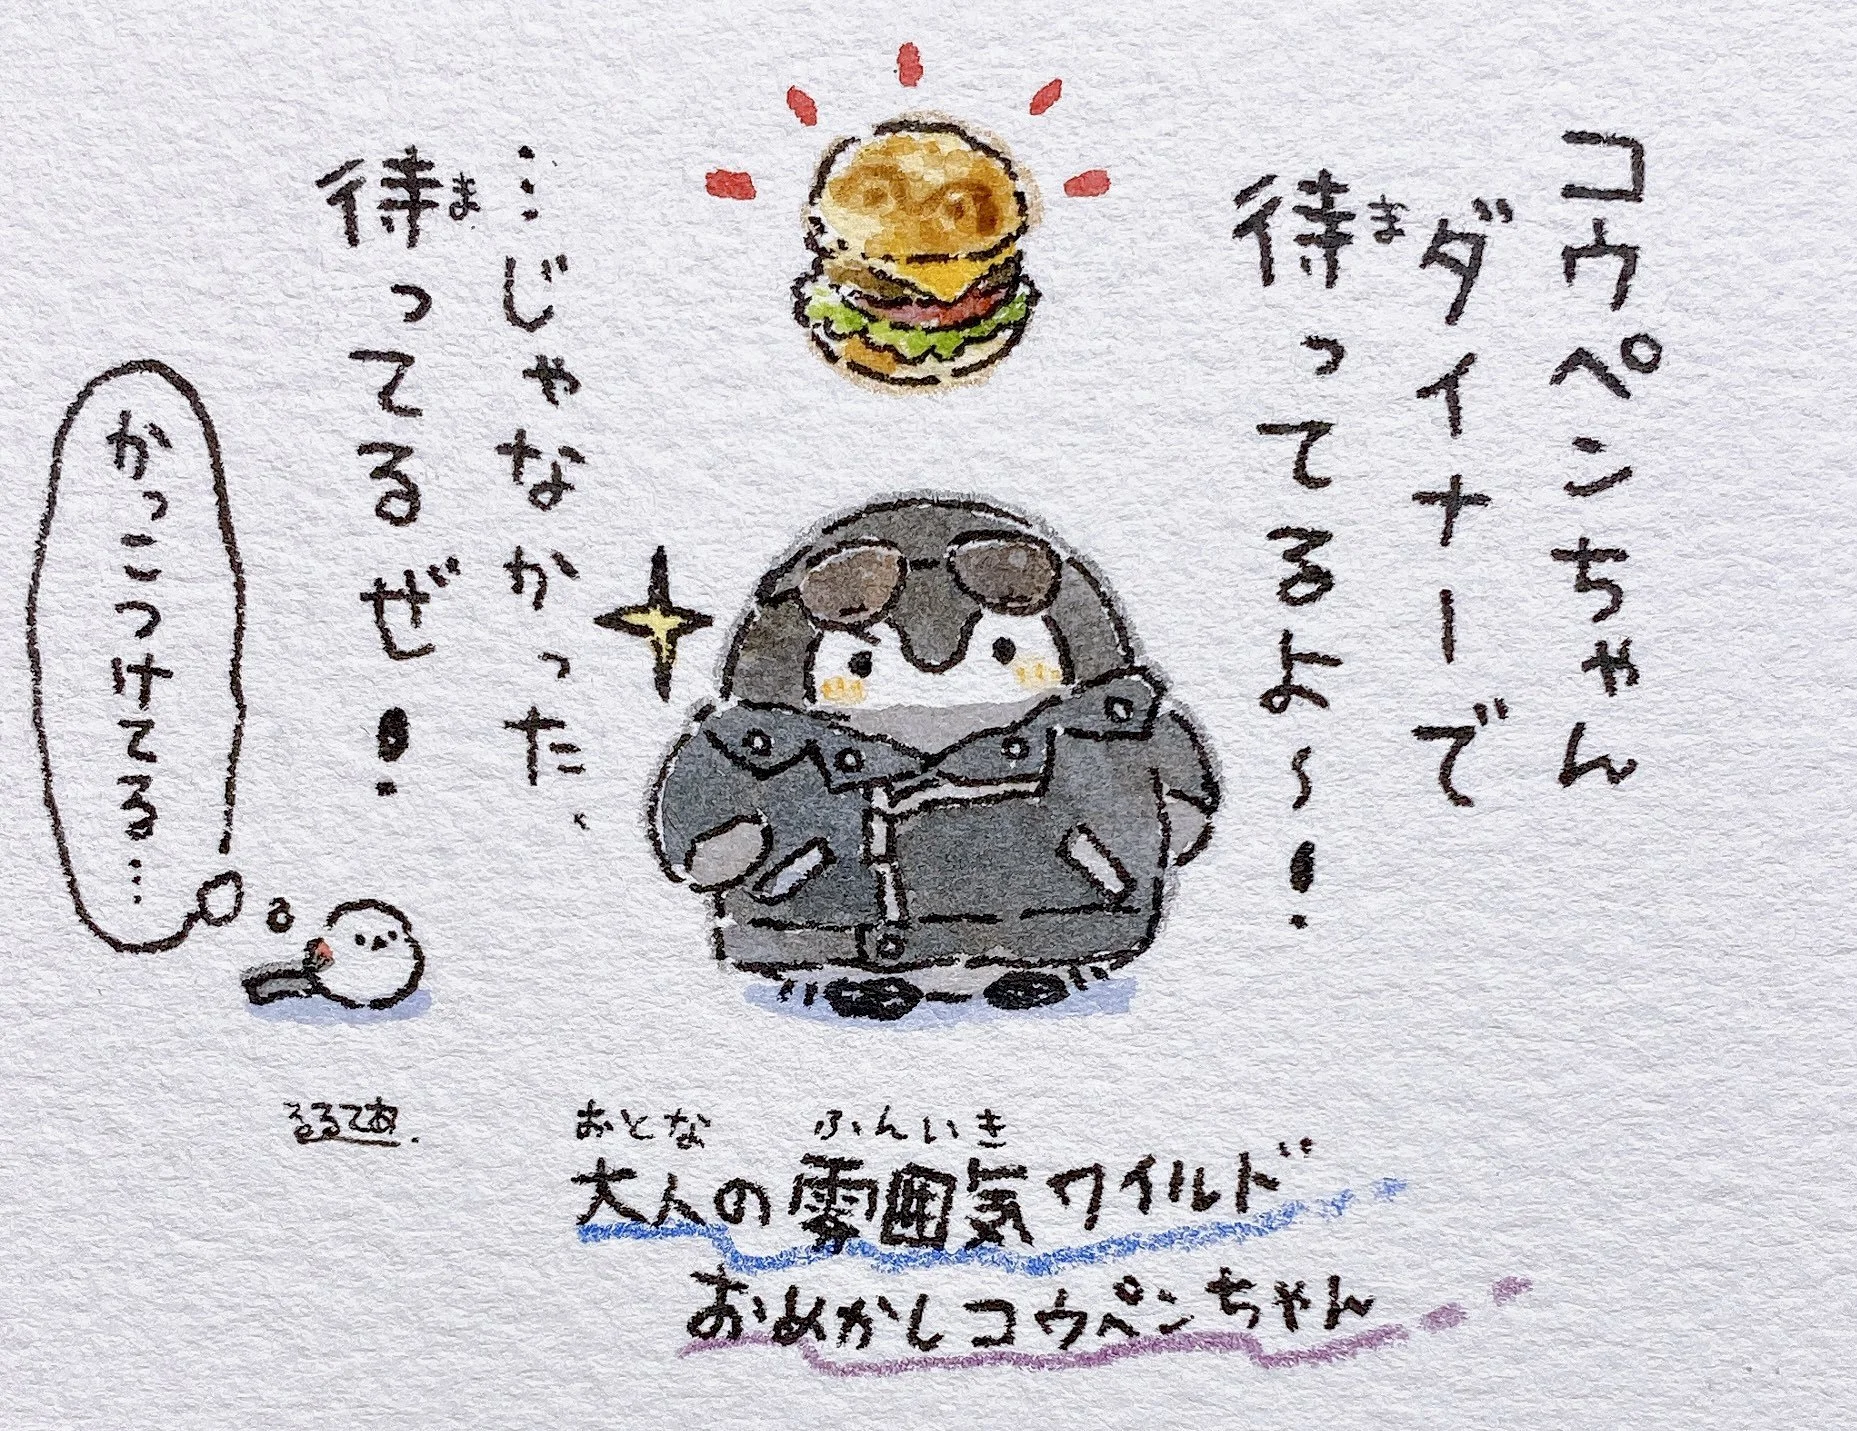 コウペンちゃん
ダイナーで
待ま ってるよ〜!
…じゃなかった、
待ま ってるぜ!
かっこつけてる…
るるてあ.
おとな ふんいき
大人の雰囲気ワイルド
おめかしコウペンちゃん